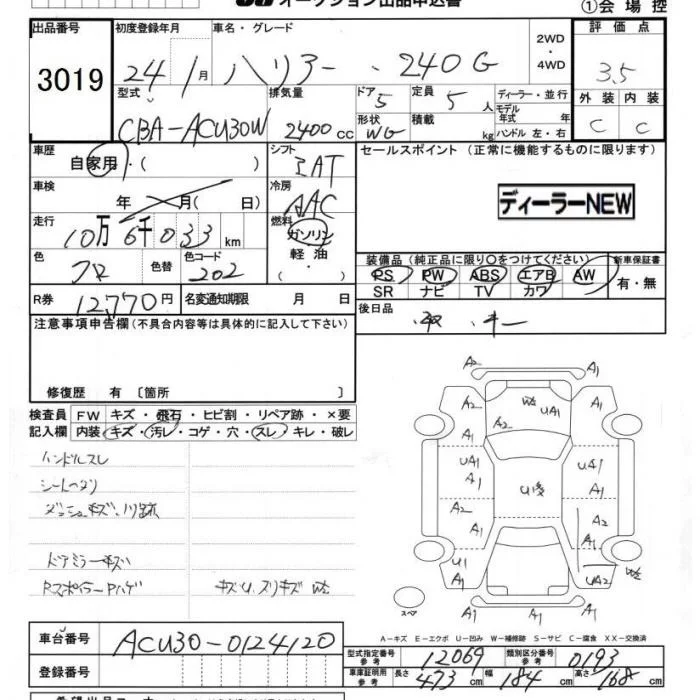 オークション出品申込書
①会場控
出品番号 初度登録年月 車名・グレード 2WD・4WD 評価点
3019 24 1月 ハリアー 、240G 3.5
型式 排気量 ドア 定員 ディーラー・並行 外装 内装
CBA-ACU30W 2400cc 5 5人 モデル年式 年 C C
形状 WG 積載 kg ハンドル 左・右
車歴 シフト セールスポイント (正常に機能するものに限ります)
自家用・( ) IAT
車検 年 月( 日) 冷房 AAC ディーラーNEW
走行 10万6千033km 燃料 ガソリン
軽油・( )
色 クロ 色替 色コード 202
装備品 (純正品に限り○をつけてください) 新車保証書
PS PW ABS エアB AW 有・無
SR ナビ TV カワ
R券 12,770円 名変通知期限 月 日 後日品
取 キー
注意事項申告欄(不具合内容等は具体的に記入して下さい)
修復歴 有〔箇所 〕
検査員 FW キズ・飛石・ヒビ割・リペア跡・×要
記入欄 内装 キズ・汚レ・コゲ・穴・スレ・キレ・破レ
ハンドルスレ
ダッシュキズ、
ドアミラーキズ
Rスポイラー
A2 A1
A2 UA1 A1
A2
UA1 UA1 A1
A1
A2 A1 A1
A1
U1 A1 UA2
A1 A1
スペア
A-キズ E-エクボ U-凹み W-補修跡 S-サビ C-腐食 XX-交換済
車台番号 ACU30-0124120
型式指定番号 参考 12069 類別区分番号 参考 0193
登録番号 車庫証明用 参考 長さ 473cm 幅 184cm 高さ 168cm